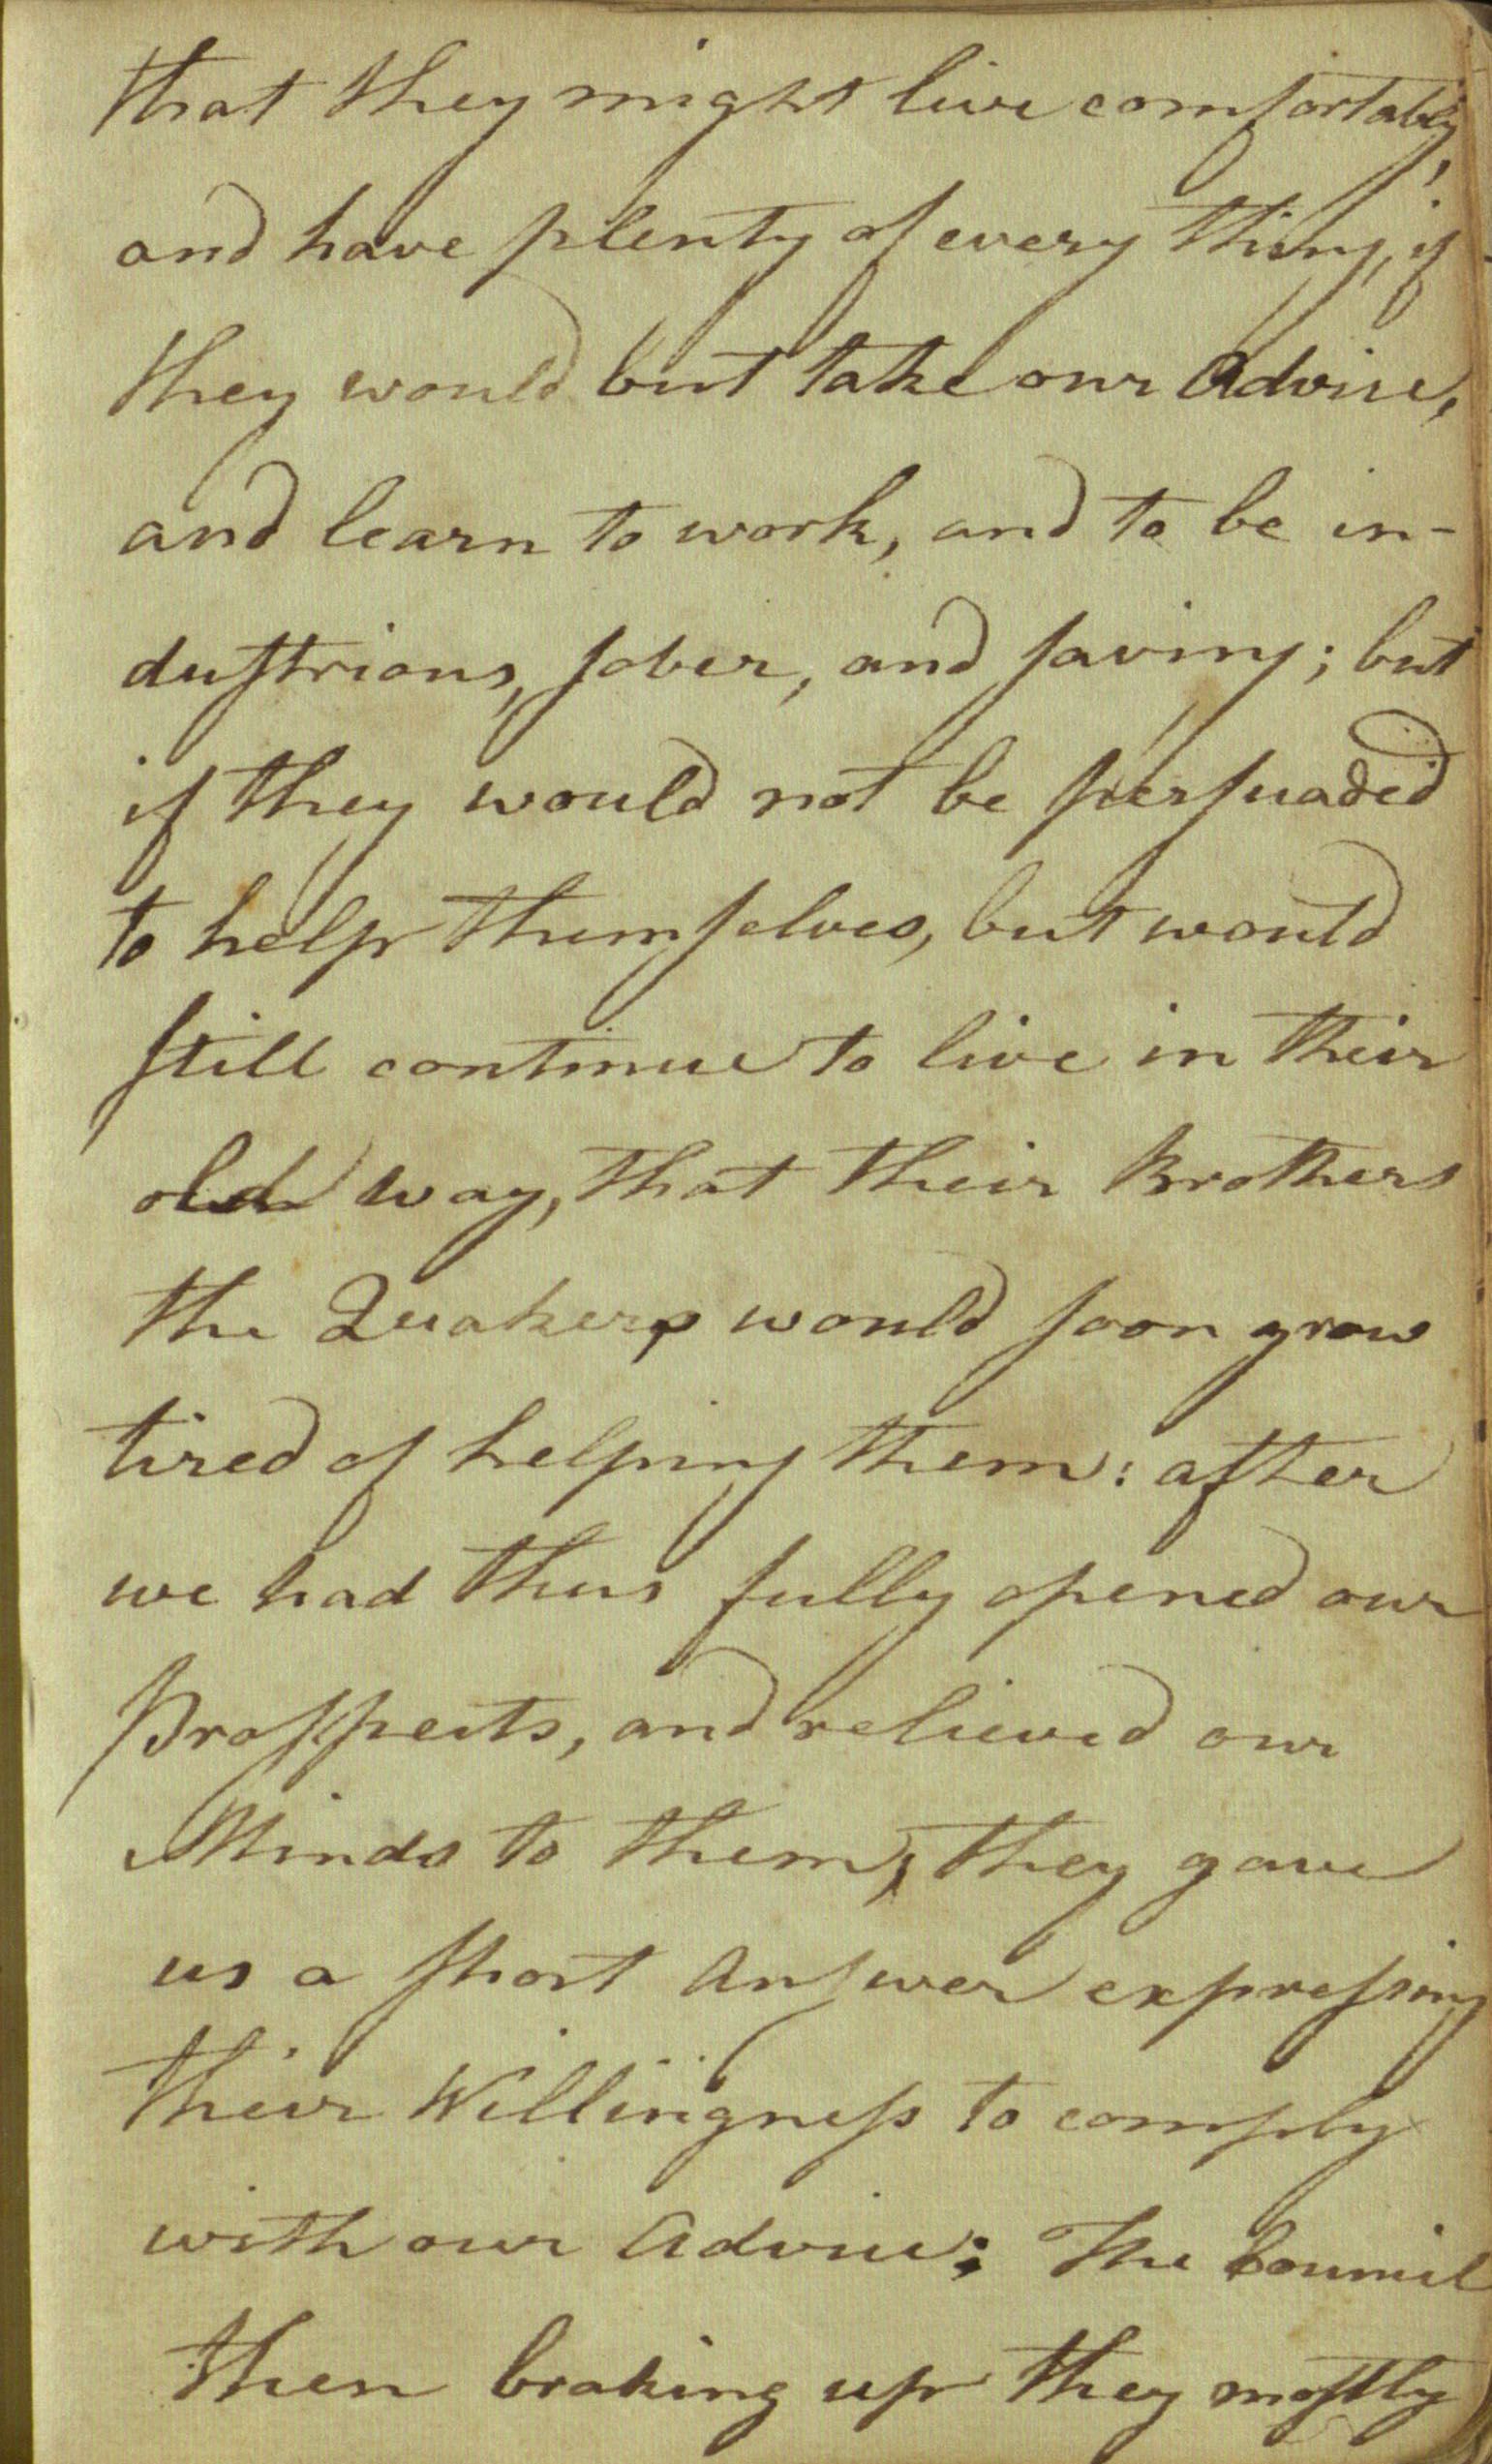 that they might live comfortably,
and have plenty of every thing, if
they would but take our Advice,
and learn to work, and to be in-
duſtrious, ſober, and ſaving; but
if they would not be perſuaded
to help themſelves, but would
ſtill continue to live in their
old way, that their Brothers
the Quakers would ſoon grow
tired of helping them: after
we had thus fully opened our
Proſpects, and relieved our
Minds to them; they gave
us a ſhort Anſwer expreſsing
their Willingneſs to comply
with our Advice; The Council
then braking up they moſtly